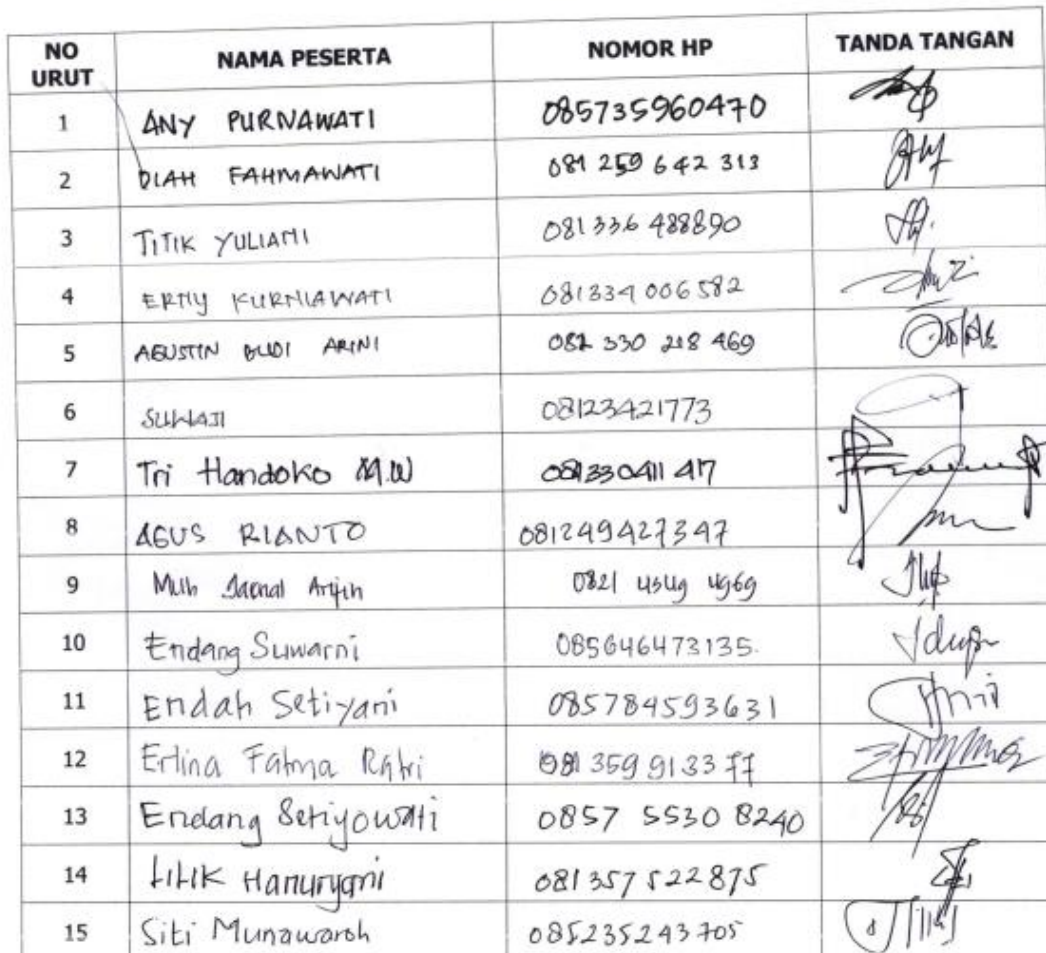 NO URUT NAMA PESERTA NOMOR HP TANDA TANGAN
1 ANY PURNAWATI 085735960470
2 DIAH FAHMAWATI 081 259 642 313
3 TITIK YULIATI 081 336 488890
4 ERNY KURNIAWATI 081334 006582
5 AGUSTIN BUDI ARINI 082 330 218 469
6 SUWAJI 08123421773
7 Tri Handoko M.W 081330411 417
8 AGUS RIANTO 081249427347
9 Muh Jaenal Arifin 0821 4349 4969
10 Endang Suwarni 085646473135.
11 Endah Setiyani 085784593631
12 Erlina Fatma Ratri 081 359 9133 77
13 Endang Setiyowati 0857 5530 8240
14 LILIK Hanuryani 081357 522875
15 Siti Munawaroh 085235243705